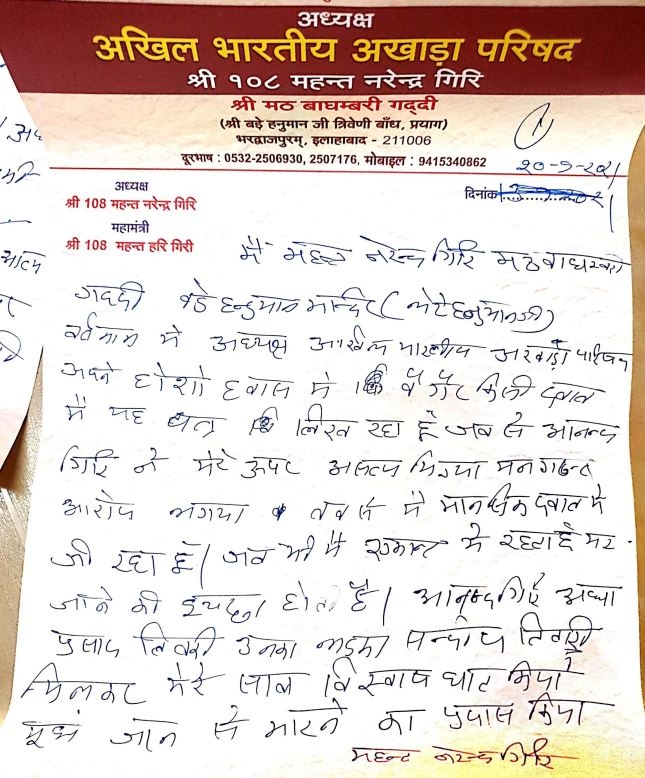 अध्यक्ष
अखिल भारतीय अखाड़ा परिषद
श्री १०८ महन्त नरेन्द्र गिरि
श्री मठ बाघम्बरी गद्दी
(श्री बड़े हनुमान जी त्रिवेणी बाँध, प्रयाग)
भरद्वाजपुरम्, इलाहाबाद - 211006
दूरभाष : 0532-2506930, 2507176, मोबाइल : 9415340862
अध्यक्ष
श्री 108 महन्त नरेन्द्र गिरि
महामंत्री
श्री 108 महन्त हरि गिरी
दिनांक
मै महन्त नरेन्द्र गिरि मठ बाघम्बरी
गद्दी बडे हनुमान मन्दिर (लेटे हनुमानजी)
वर्तमान मे अध्यक्ष अखिल भारतीय अखाड़ा परिषद
अपने होशो हवास मे बगैर किसी दवाव
मै यह पत्र लिख रहा हूँ जब से आनन्द
गिरि ने मेरे ऊपर असत्य मिथ्या मनगढन्त
आरोप लगाया तब से मै मानसिक दवाव मे
जी रहा हूँ। जब भी मै एकान्त मे रहता हूँ मर
जाने की इच्छा होती है। आनन्द गिरि आद्या
प्रसाद तिवारी उनका लड़का सन्दीप तिवारी
मिलकर मेरे साथ विश्वासघात किया
मुझे जान से मारने का प्रयास किया
महन्त नरेन्द्र गिरि